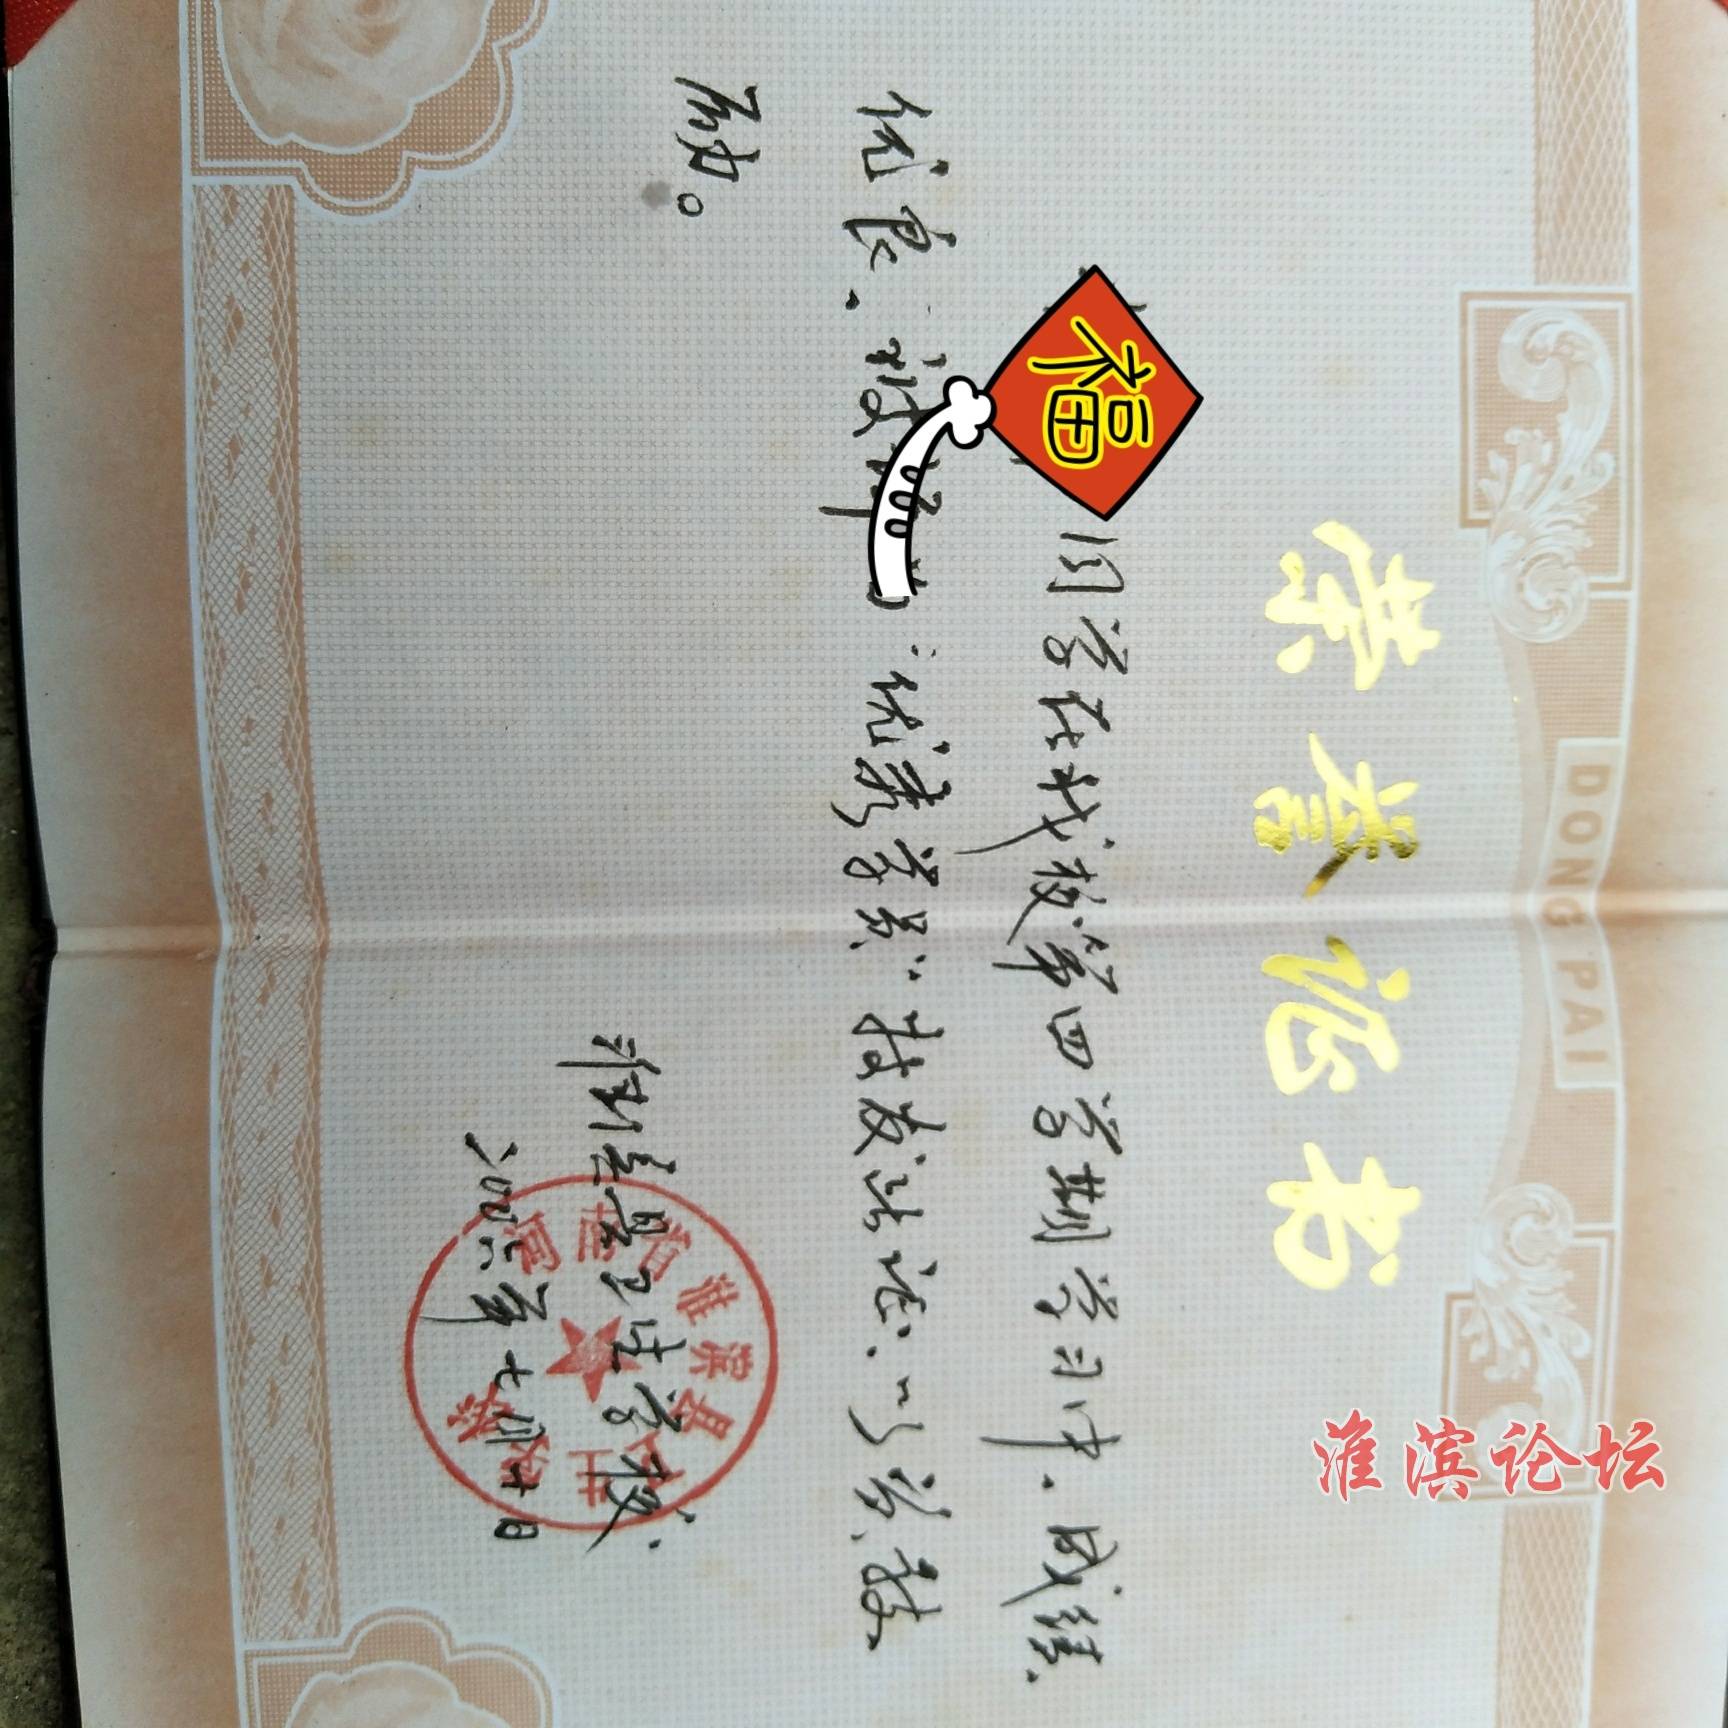 DONG PAI
荣誉证书
福
同学在我校第四学期学习中,成绩
优良,被评为"优秀学员"特发此证,以资鼓
励。
淮滨县卫生学校
河南省淮滨县卫生学校
二00六年七月十日
淮滨论坛